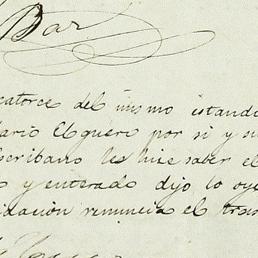 Bar
catorce del mismo estand
lario Elguero por si y su
scribano les hise saber el
o y enterado dijo lo oye
idación renuncia el tras